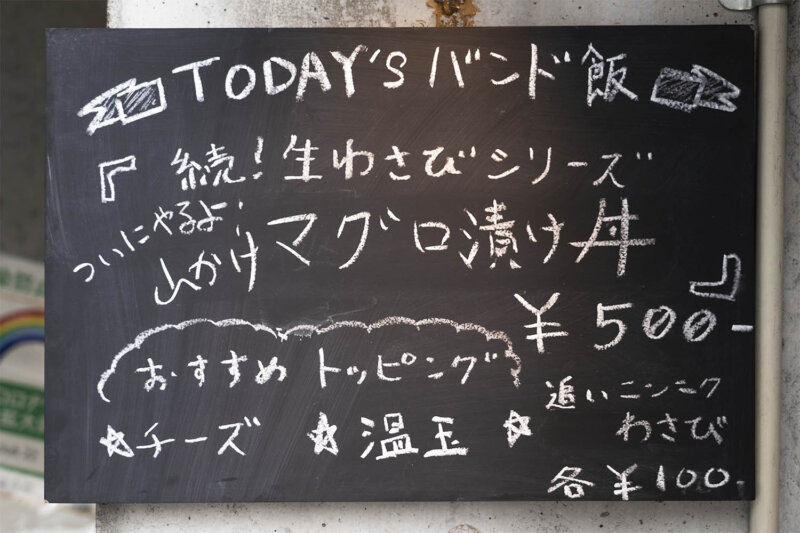 TODAY'S バンド飯
『続！生わさびシリーズ
ついにやるよ！
山かけマグロ漬け丼』
¥500-
おすすめ トッピング
☆チーズ ☆温玉 ☆追いニンニク
わさび
各¥100.
コロナ